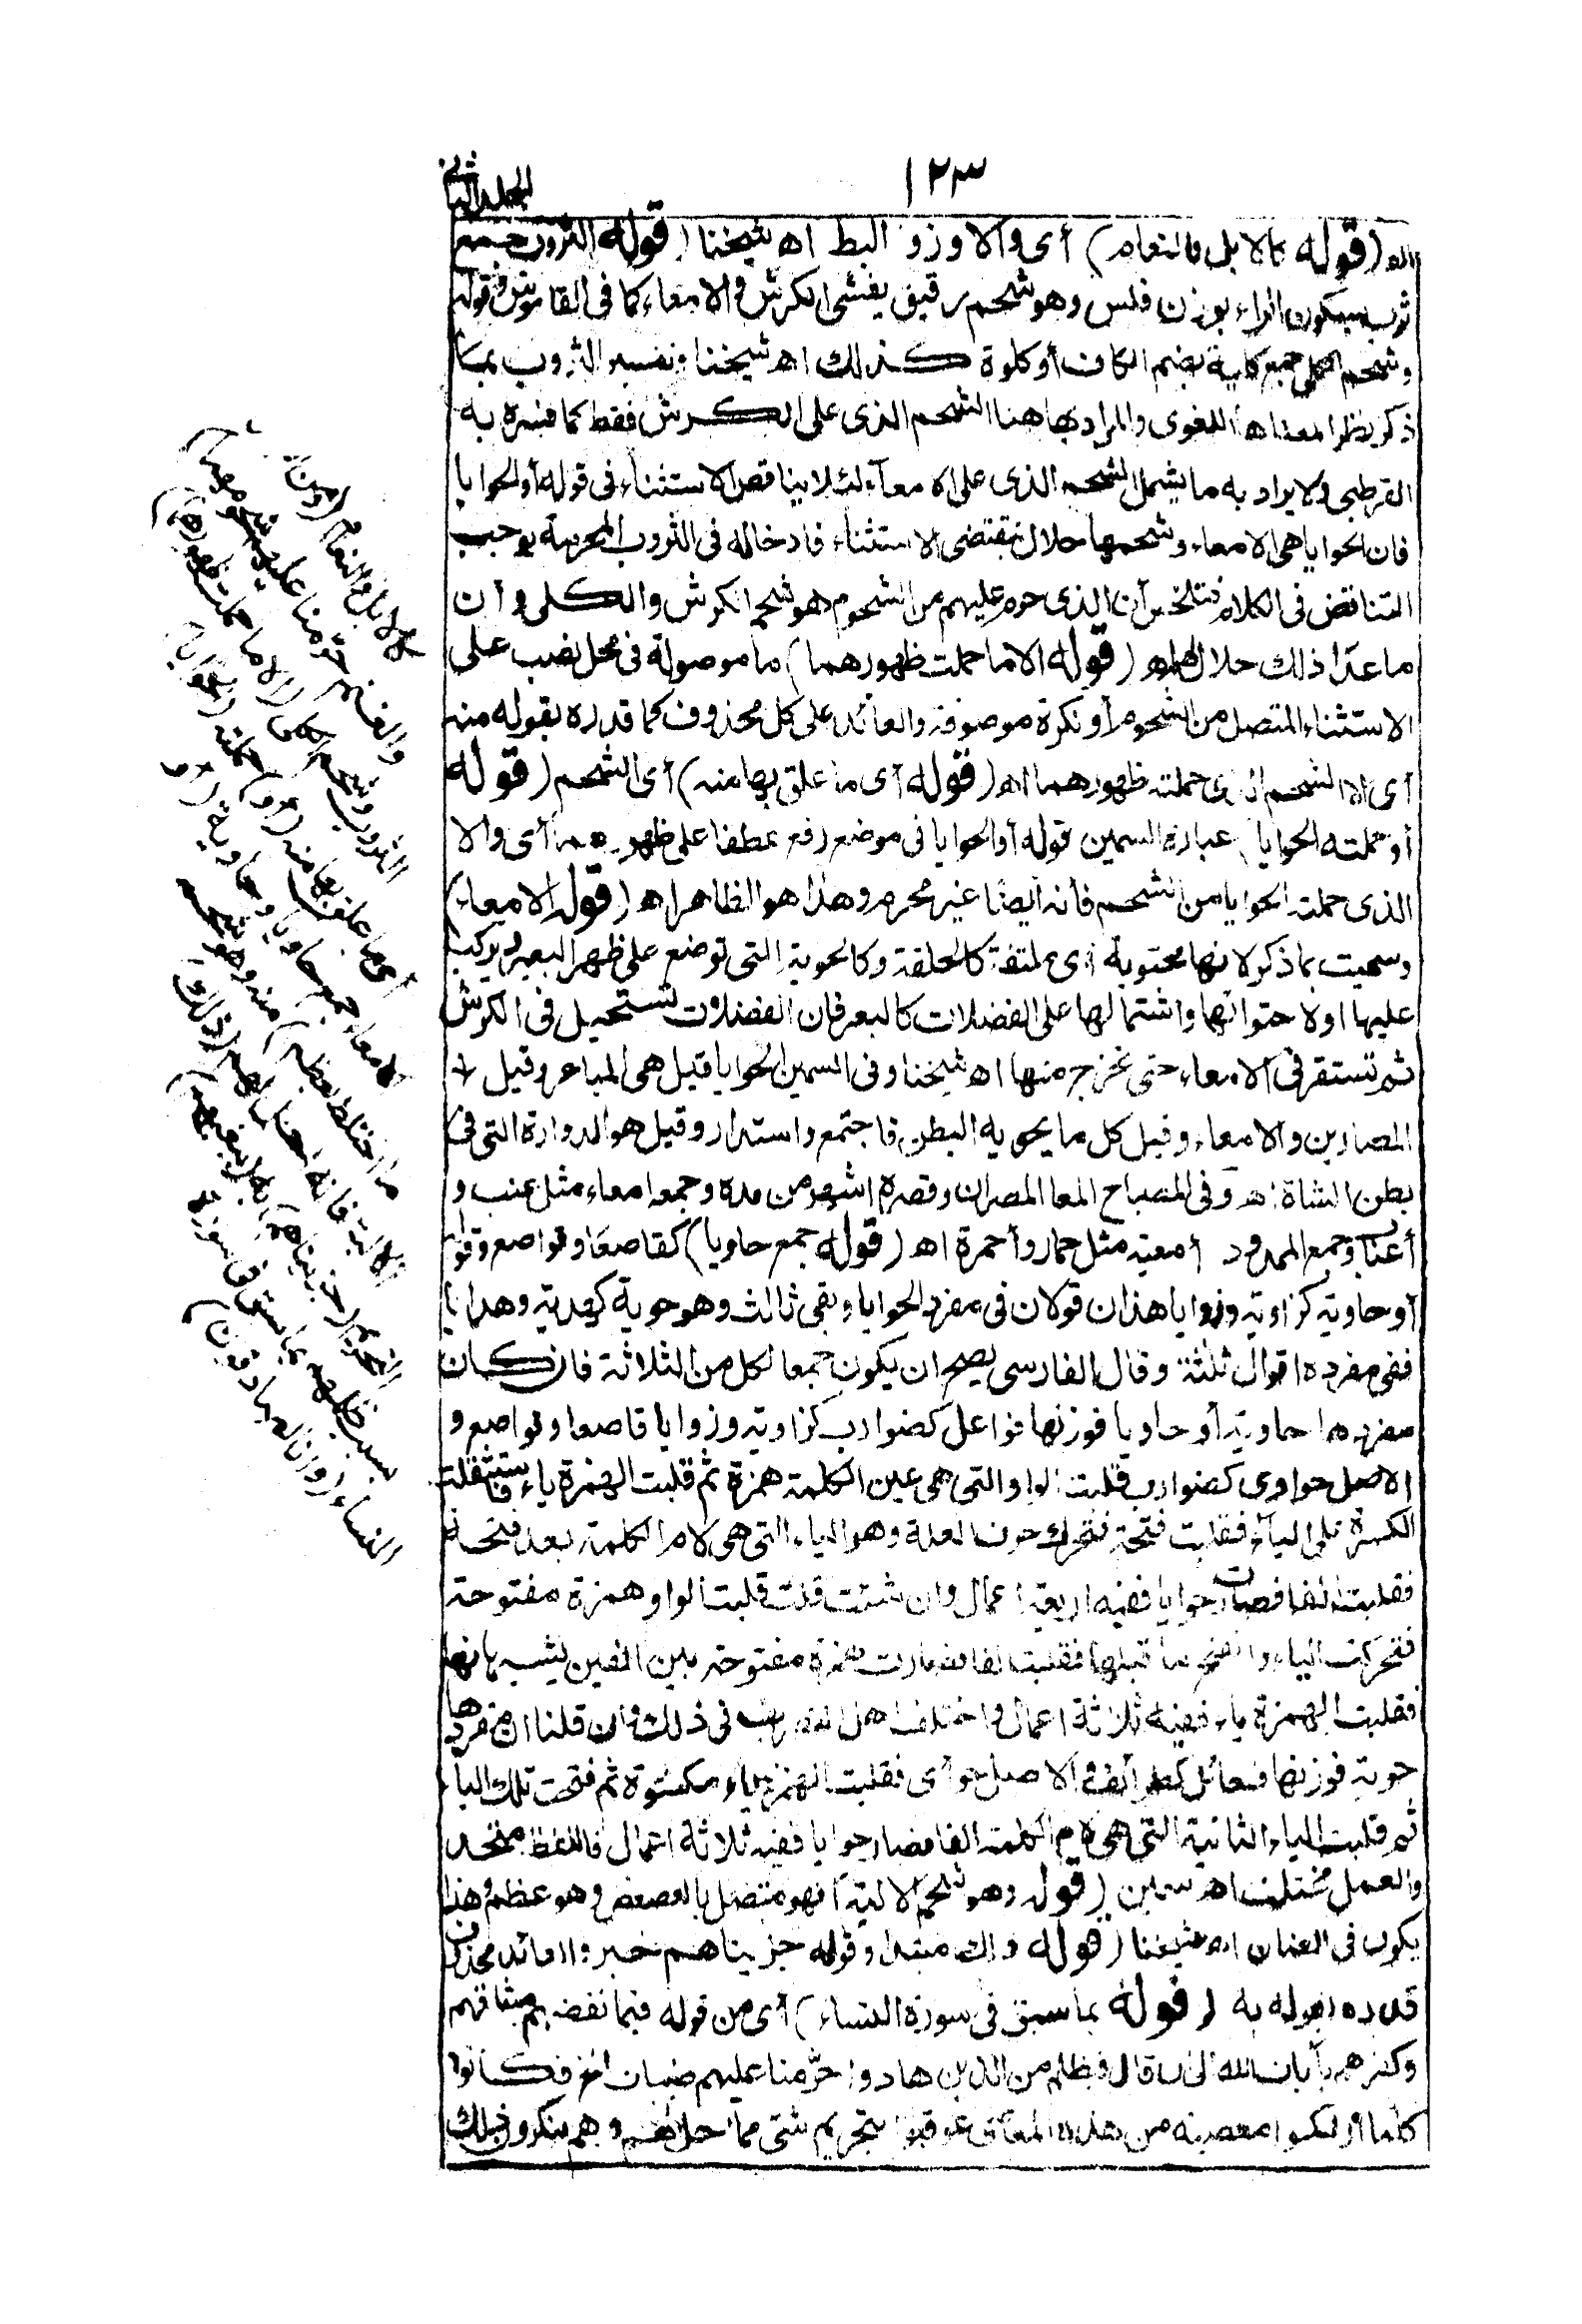 ١٢٣
الجلد الثانى
اه (قوله كالابل والنعام) أى والاوز والبط اه شيخنا (قوله الثروب جمع
ثرب بسكون الراء بوزن فلس وهو شحم رقيق يغشى الكرش والامعاء كما فى القاموس وقوله
وشحم الكلى جمع كلية بضم الكاف أو كلوة كذلك اه شيخنا وتفسير الثروب بما
ذكر نظرا لمعناها اللغوى والمراد بها هنا الشحم الذى على الكرش فقط كما فسره به
القرطبى ولا يراد به ما يشمل الشحم الذى على الامعاء لئلا يناقض الاستثناء فى قوله أو الحوايا
فان الحوايا هى الامعاء وشحمها حلال بمقتضى الاستثناء فادخاله فى الثروب المحرمة يوجب
التناقض فى الكلام فتلخص أن الذى حرم عليهم من الشحوم هو شحم الكرش والكلى وأن
ما عدا ذلك حلال لهم اه (قوله الا ما حملت ظهورهما) ما موصولة فى محل نصب على
الاستثناء المتصل من الشحوم أو نكرة موصوفة والعائد على كل محذوف كما قدره بقوله منه
أى الا الشحم الذى حملته ظهورهما اه (قوله أى ما علق بها منه) أى الشحم (قوله
أو حملته الحوايا عبارة السمين قوله أو الحوايا فى موضع رفع عطفا على ظهورهما أى والا
الذى حملته الحوايا من الشحم فانه أيضا غير محرم وهذا هو الظاهر اه (قوله الامعاء)
وسميت بما ذكر لانها محتوية أى ملتفة كالحلقة وكالحوية التى توضع على ظهر البعير ويركب
عليها او لاحتوائها واشتمالها على الفضلات كالبعر فان الفضلات تستحيل فى الكرش
ثم تستقر فى الامعاء حتى تخرج منها اه شيخنا وفى السمين الحوايا قيل هى المباعر وقيل
المصارين والامعاء وقيل كل ما يحويه البطن فاجتمع واستدار وقيل هو الدوارة التى فى
بطن الشاة اه وفى المصباح المعا المصران وقصره اشهر من مده وجمعه امعاء مثل عنب و
أعناب وجمع الممدود أمعية مثل حمار وأحمرة اه (قوله جمع حاويا) كقاصعا وقواصع وقوله
أو حاوية كزاوية وزوايا هذان قولان فى مفرد الحوايا وبقى ثالث وهو حوية كهدية وهدايا
ففى مفرده اقوال ثلثة وقال الفارسى يصح ان يكون جمعا لكل من الثلاثة فان كان
مفردها حاوية أو حاويا فوزنها فواعل كضوارب كزاوية وزوايا قاصعا وقواصع و
الاصل حواوى كضوارب قلبت الواو التى هى عين الكلمة همزة ثم قلبت الهمزة ياء فاستثقلت
الكسرة على الياء فقلبت فتحة فتحرك حرف العلة وهو الياء التى هى لام الكلمة بعد فتحة
فقلبت الفا فصارت حوايا ففيه اربعة اعمال وان شئت قلت قلبت الواو همزة مفتوحة
فتحركت الياء وانفتح ما قبلها فقلبت الفا فصارت همزة مفتوحة بين الفين يشبهانها
فقلبت الهمزة ياء ففيه ثلاثة اعمال واختلف اهل التصريف فى ذلك وان قلنا ان مفردها
حوية فوزنها فعائل كطرائف والاصل حوائى فقلبت الهمزة ياء مكسورة ثم فتحت تلك الياء
ثم قلبت الياء الثانية التى هى لام الكلمة الفا فصار حوايا ففيه ثلاثة اعمال فاللفظ متحد
والعمل مختلف اه سمين (قوله وهو شحم الالية) فهو متصل بالعصعص وهو عظم وهذا
يكون فى الضان اه شيخنا (قوله ذلك مبتدأ وقوله جزيناهم خبر والعائد محذوف
قدره بقوله به (قوله بما سبق فى سورة النساء) أى من قوله فبما نقضهم ميثاقهم
وكفرهم بآيات الله الى ان قال فبظلم من الذين هادوا حرّمنا عليهم طيبات الخ فكانوا
كلما ارتكبوا معصية من هذه المعاصى عوقبوا بتحريم شئ مما حل لهم وهم ينكرون ذلك
كالابل والنعام (ومن
والغنم حرمنا عليهم شحومهما)
الثروب وشحم الكلى (الا ما حملت ظهورهما)
أى ما علق بها منه (أو) حملته (الحوايا)
الامعاء جمع حاويا وحاوية (أو
ما اختلط بعظم) منه وهو شحم
الالية فانه احل لهم (ذلك)
التحريم (جزيناهم) به (ببغيهم)
بسبب ظلمهم بما سبق فى سورة
النساء (وانا لصادقون)